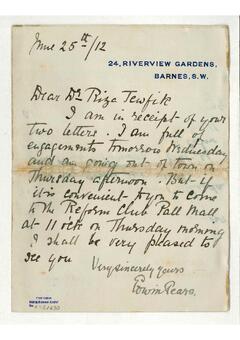 June 25th/12
24, RIVERVIEW GARDENS,
BARNES, S.W.
Dear Dr Riza Tewfik
I am in receipt of your
two letters. I am full of
engagements tomorrow Wednesday
and am going out of town on
Thursday afternoon. But if
it is convenient to you to come
to the Reform Club Pall Mall
at 11 oclk on Thursday morning
I shall be very pleased to
see you
Very sincerely yours
Edwin Pears.